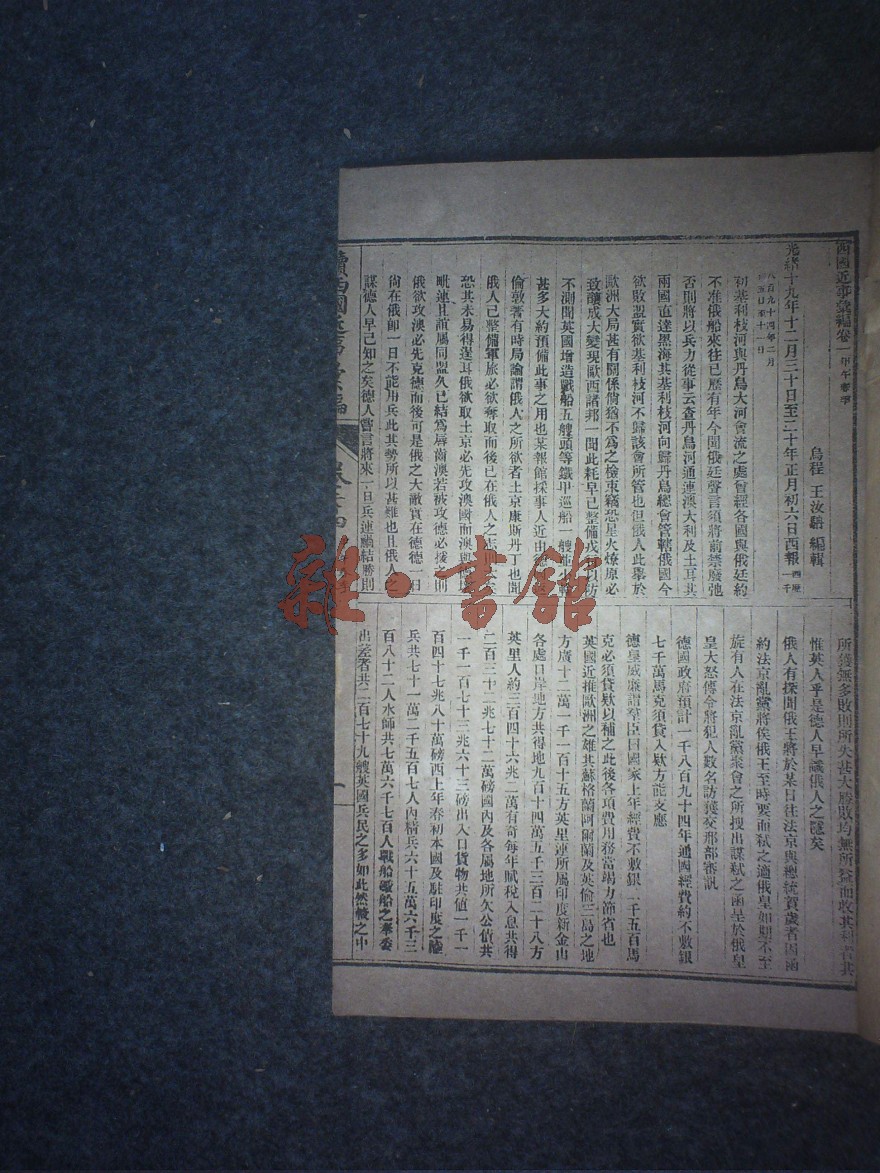 西國近事彙編卷一甲午春季
烏程 王汝駬 編輯
光緒十九年十二月三十日至二十年正月初六日西報西歷一千
八百九十四年二月
初五日至十一日
初基利枝河與丹鳥大河會流之處曾經各國與俄廷約
不准俄船來往已歷有年今聞俄廷聲言須將前禁廢弛
否則將以兵力從事云查丹鳥河通連澳大利及土耳其
兩國直達黑海其基利枝河向歸丹鳥總會管轄俄國今
欲敗盟實欲基利枝河不歸該會所管也但俄人此舉於
歐洲大局甚有關係倘猶不為之檢束竊恐星火燎原必
致釀成大變現歐西諸邦一聞此耗早已整備戎以防
不測聞英國增造戰船五艘頭等鐵甲巡船一艘
甚多大約預備此事之用也某報館採事人近由
倫敦著有時局論謂俄人之所欲者土京康斯丹丁也聞
俄人已整備軍旅必欲奪取而後已在俄人之
恐其未易得逞耳俄欲取土京必先攻澳國而澳與德
毗連且誼屬同盟久已結為脣齒澳若被攻德必援之
俄欲攻澳必先克德而後可是俄之大敵實在德德一日
尚在俄卽一日不能用兵此其勢所以甚難也且俄人之
謀德人早已知之矣德人嘗言將來一旦兵連禍結勝則
所錢無多敗則所失甚大勝敗均無所益而收其利者其
惟英人乎是德人早識俄人之隱矣
俄人有探聞俄王將於某日往法京與總統賀歲者因函
約法京亂黨將俟俄王至時要而弒之適俄皇如期不至
旋有人在法京亂黨聚會之所搜出謀弒之函呈於俄皇
皇大怒傳令將犯人數名訪獲交刑部審訊
德國政府預計一千八百九十四年通國經費約不敷銀
七千萬馬克須貸入欵方能支應
德皇威廉謂羣臣曰國家上年經費不敷銀一千五百馬
克必須貸欵以補之此後各項費用務當竭力節省也
英國近推歐洲之雄其蘇格蘭阿爾蘭及英倫三島之地
方廣十二萬一千一百十五方英里連所屬印度新金山
各處口岸地方共得地九百十四萬五千三百二十八方
英里人約三百四十六兆二萬有奇每年賦稅入息共得
二百三十二兆七十二萬磅國內及各屬地所欠公債共
一千一百七十三兆六十三磅出入口貨物共值一千一
百四十七兆八十萬磅西上年春初本國及駐印度之陸
兵共七十一萬二千五百七人內精兵六十五萬六千三
百八十二人水師共七萬六千七百人戰船礮船之奉委
出差者共二百七十九艘英國兵民之多如此然觀之中
續西國近事彙編
一
雜·書館